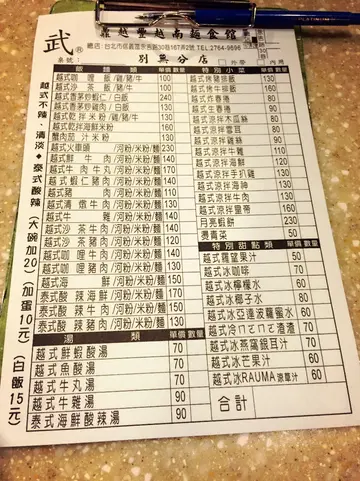 武®
鼎越豐越南麵食館
總店:台北市信義區永吉路30巷167弄2號 TEL:2764-9596
別無分店
桌號: 外帶 內用
飯麵類 單價 數量
越式咖哩飯/雞/豬/牛 100
越式沙茶飯/豬/牛 100
越式香茅炒蝦仁/白飯 240
越式香茅炒雞/白飯
越式乾拌米粉/雞/豬/牛 130
越式乾拌海鮮米粉 160
蟹肉茄汁米粉 160
越式火車頭/河粉/米粉/麵 230
越式鮮牛肉/河粉/米粉/麵 140
越式牛肉牛丸/河粉/米粉/麵
越式蝦仁豬肉/河粉/米粉/麵
越式豬肉/河粉/米粉/麵
越式清燉牛肉/河粉/米粉/麵
越式牛雜/河粉/米粉/麵 140
越式沙茶牛肉/河粉/米粉/麵 140
越式沙茶豬肉/河粉/米粉/麵 130
越式咖哩牛肉/河粉/米粉/麵 140
越式咖哩豬肉/河粉/米粉/麵 130
越式海鮮/河粉/米粉/麵 150
泰式酸辣海鮮/河粉/米粉/麵 150
泰式酸辣牛肉/河粉/米粉/麵 140
泰式酸辣豬肉/河粉/米粉/麵 130
湯類 單價 數量
越式鮮蝦酸湯 70
越式魚酸湯 70
越式牛丸湯 70
越式牛雜湯 90
泰式海鮮酸辣湯 90
特別小菜 單價 數量
越式烤豬排飯 130
越式炸春捲
越式生春捲
越式生春捲
越式涼拌木瓜絲
越式涼拌雲耳
越式涼拌雞絲
越式涼拌牛雜
越式涼拌海鮮
越式涼拌手扒雞
越式涼拌海神
越式涼拌牛肉
越式涼拌皇帝 160
月亮蝦餅 230
燙青菜 50
特別甜點類 單價 數量
越式羅望果汁 50
越式冰咖啡 70
越式冰檸檬水 60
越式冰椰子水 80
越式冰亞達波蘿蜜水 60
越式冷ㄇㄈㄈ渣渣 70
越式冰燕窩銀耳汁 70
越式冰芒果汁 60
越式冰RAUMA涼草汁 60
合計
越式不辣、清淡◆泰式酸辣(大碗加20)(加蛋10元)(白飯15元)